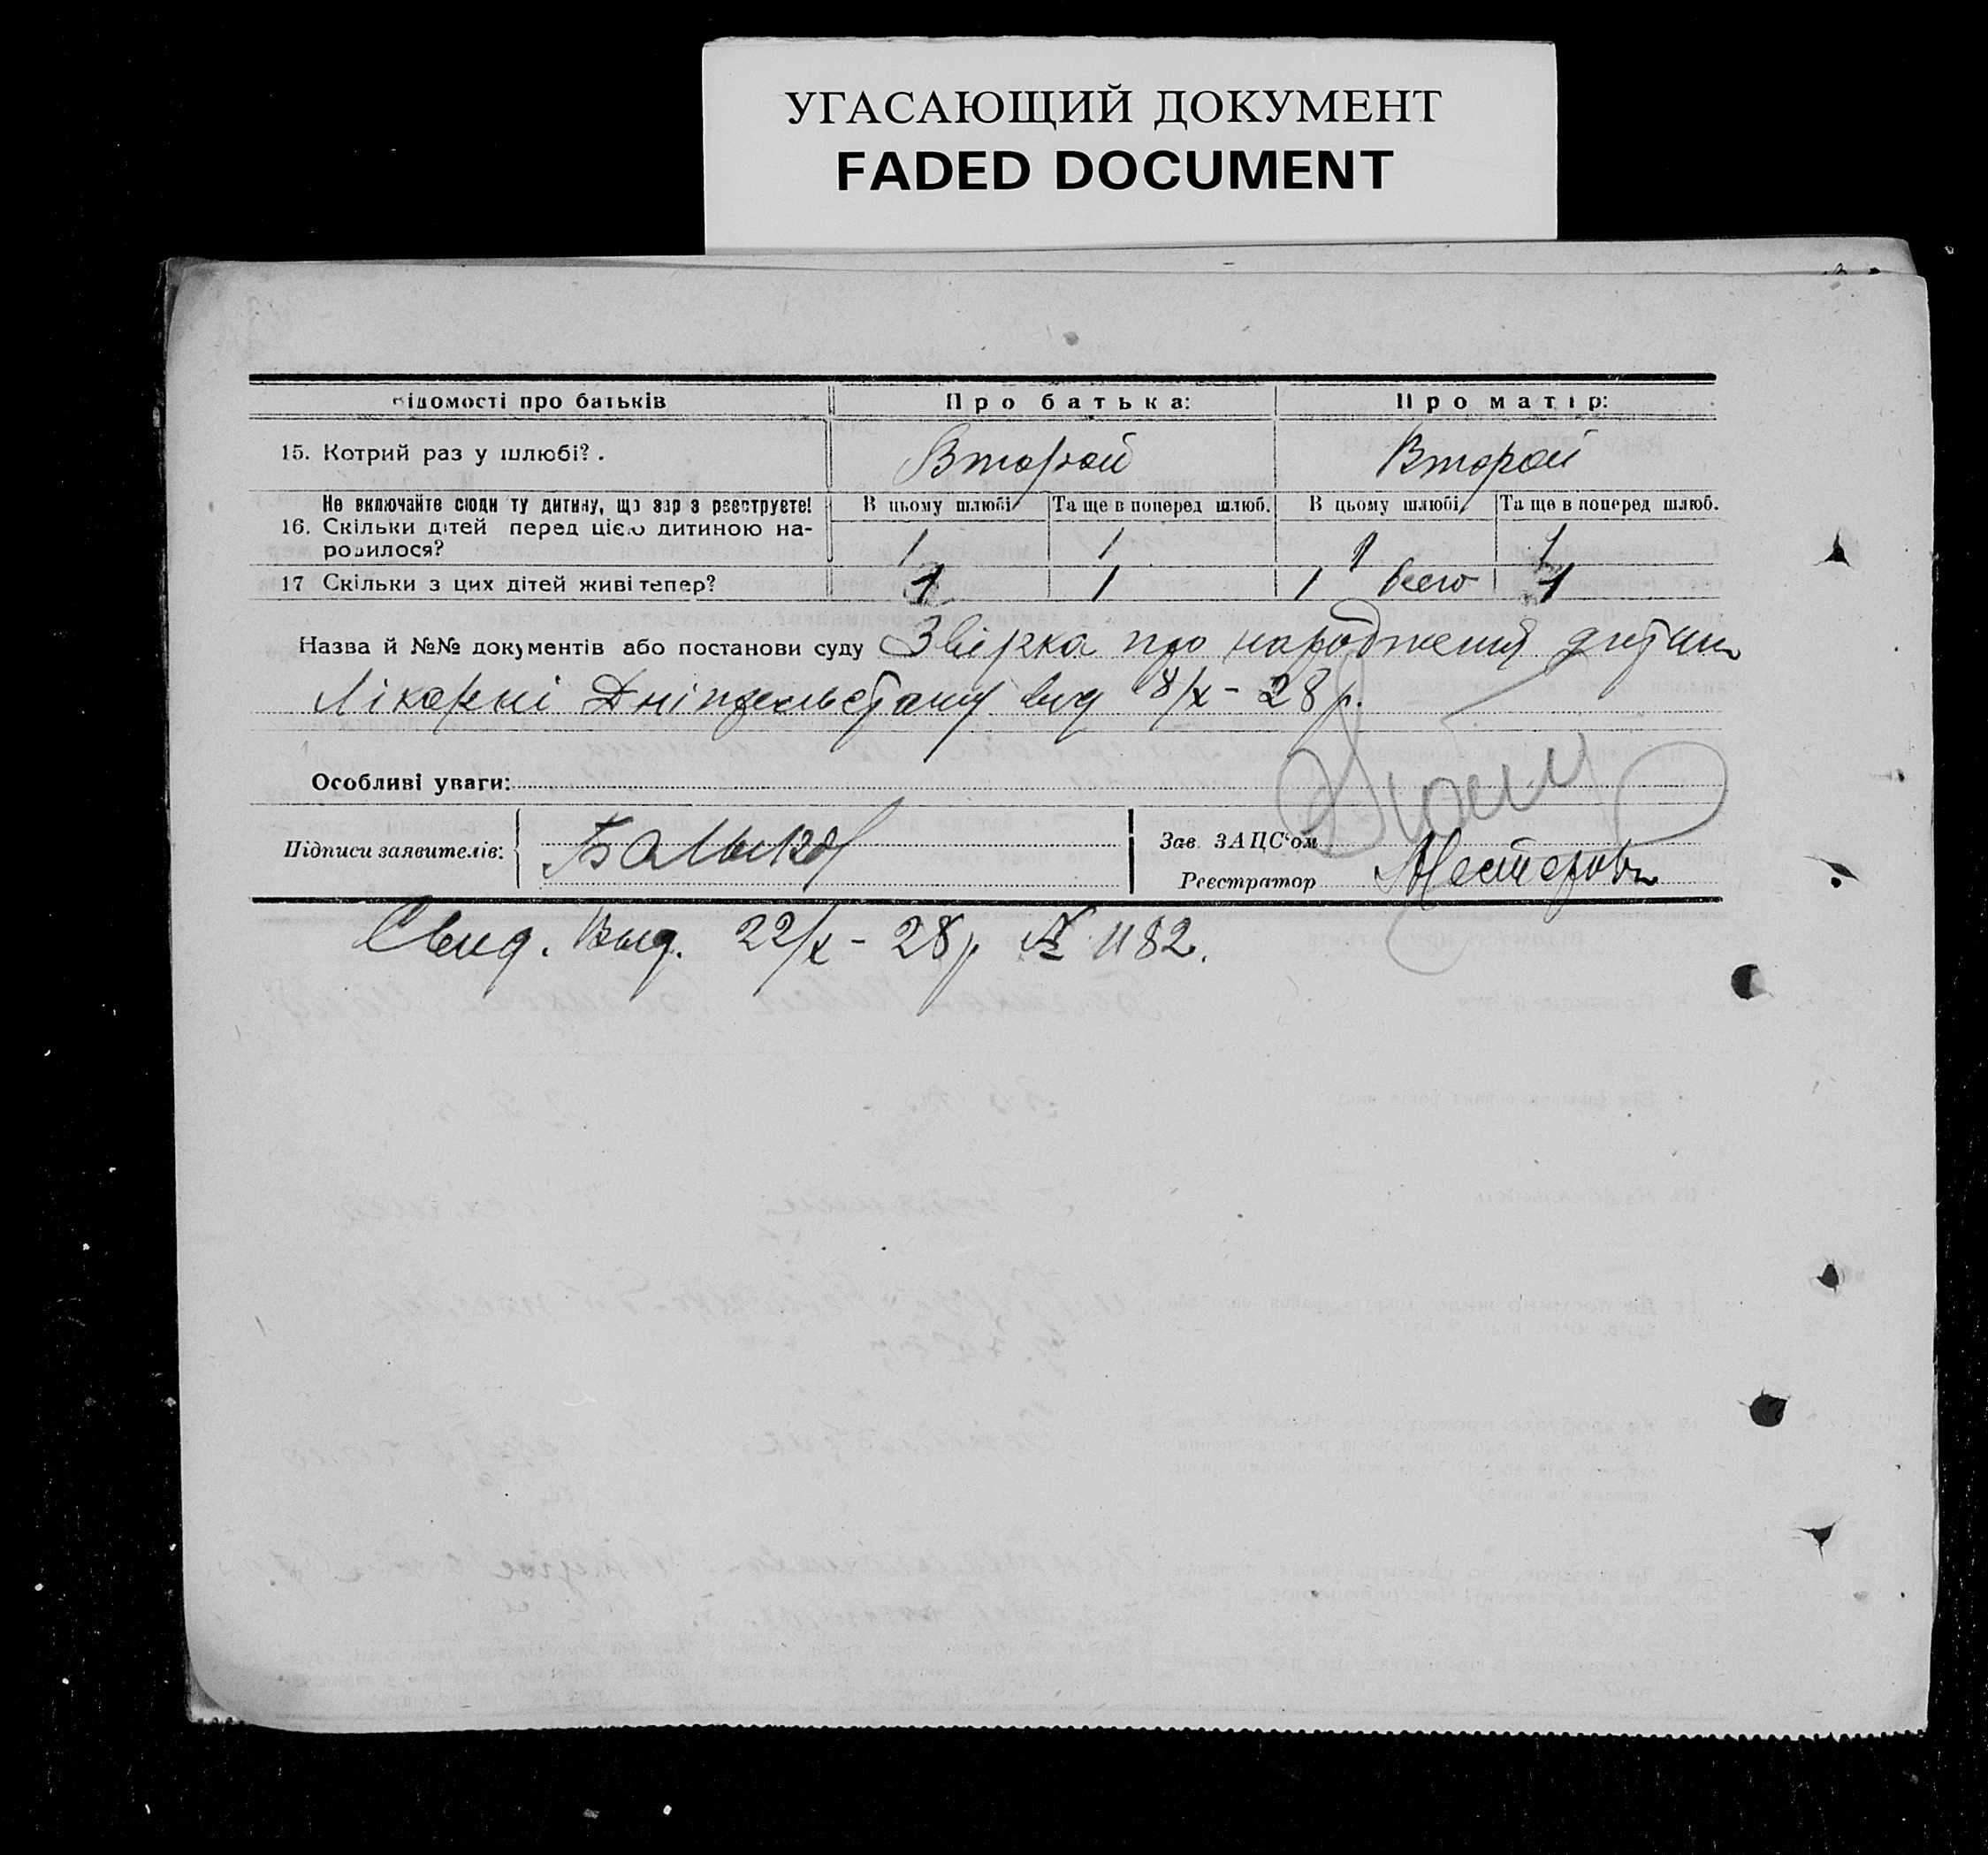 УГАСАЮЩИЙ ДОКУМЕНТ
FADED DOCUMENT
відомості про батьків Про батька: Про матір:
15. Котрий раз у шлюбі?. Второй Второй
Не включайте сюди ту дитину, що зараз реєструєте! В цьому шлюбі Та ще в поперед шлюб. В цьому шлюбі Та ще в поперед шлюб.
16. Скільки дітей перед цією дитиною на-
родилося? 1 1 1 1
17 Скільки з цих дітей живі тепер? 1 1 1 всего 1
Назва й №№ документів або постанови суду про народження дитини
Лікарні від 8/х - 28 р.
Особливі уваги:
Підписи заявителів: Зав. ЗАЦС'ом
Реєстратор
Свид. Выд. 22/х - 28 р № 1182.